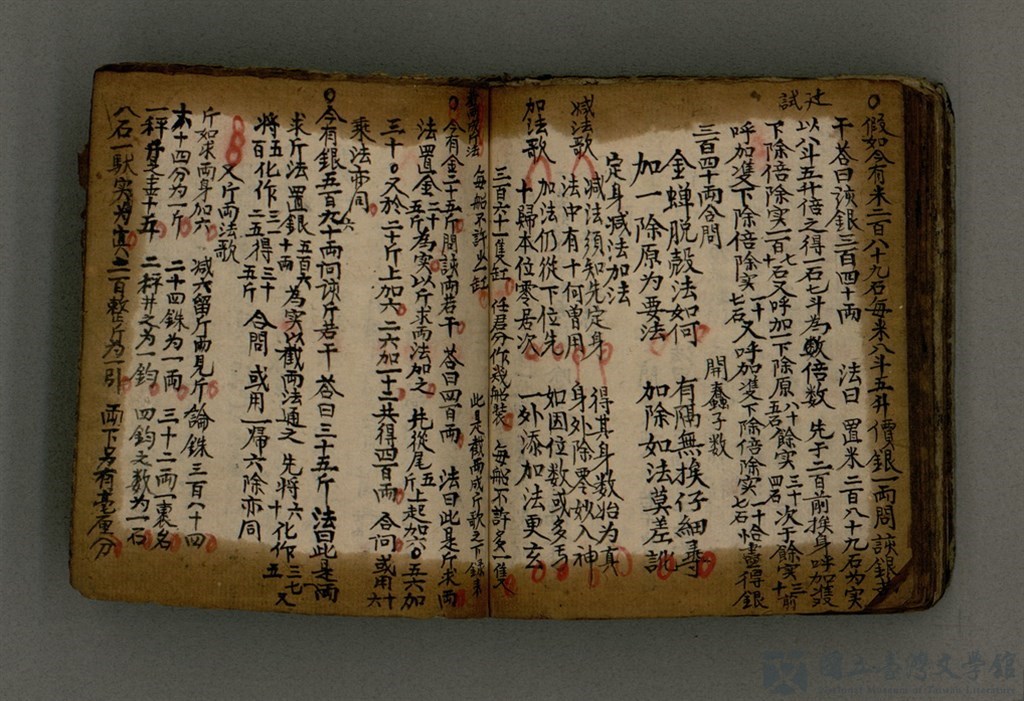 ○假如今有米二百八十九石每米八斗五升價銀一両問該銀若
干荅曰該銀三百四十両 法曰 置米二百八十九石為实
以八斗五升倍之得一石七斗為数倍数 先于二百前挨身呼加隻
下除倍除实一百七十石又呼加一下除原八十五石餘实三十四石次于餘实三十前
呼加隻下除倍除实一十七石又呼加隻下除倍除实一十七石恰盡得銀
三百四十両合問
試
金蝉脱殼法如何 有隔無挨仔細尋
加一除原为要法 加除如法莫差訛
定身減法加法 開蠡子数
減法歌 減法須知先定身 得其身数始为真
法中有十何曽用 身外除零妙入神
加法歌 加法仍従下位先 如因位数或多丐
十歸本位零居次 一外添加法更玄
三百六十一隻缸 任君分作幾船裝 每船不許多一隻
每船不許少一缸 此是截両成斤歌之下錄
○今有金二十五斤問該両若干 荅曰四百両 法曰此是斤求両
法置金二十五斤为实以斤求両法加之 先従尾五斤上起加六○五六加
三十○又於二十斤上加六 二六加一十二共得四百両 合问 或用十六
乘法亦同
○今有銀五百六十両问该斤若干 荅曰三十五斤 法曰此是両
求斤法置銀五百六十両 为实以截両法通之 先将六十化作三七五 又
将五百化作三一二五得三十五斤 合問 或用一帰六除亦同
又斤両法歌
斤如求両身加六 減六留斤両見斤 論銖三百八十四
六十四分为一斤 二十四銖为一両 三十二両一裹名
一秤斤隻壹十五 二秤并之为一鈞 四鈞之数为一石
二百整斤为一引 両下另有毫厘分
國立臺灣文學館
National Museum of Taiwan Literature